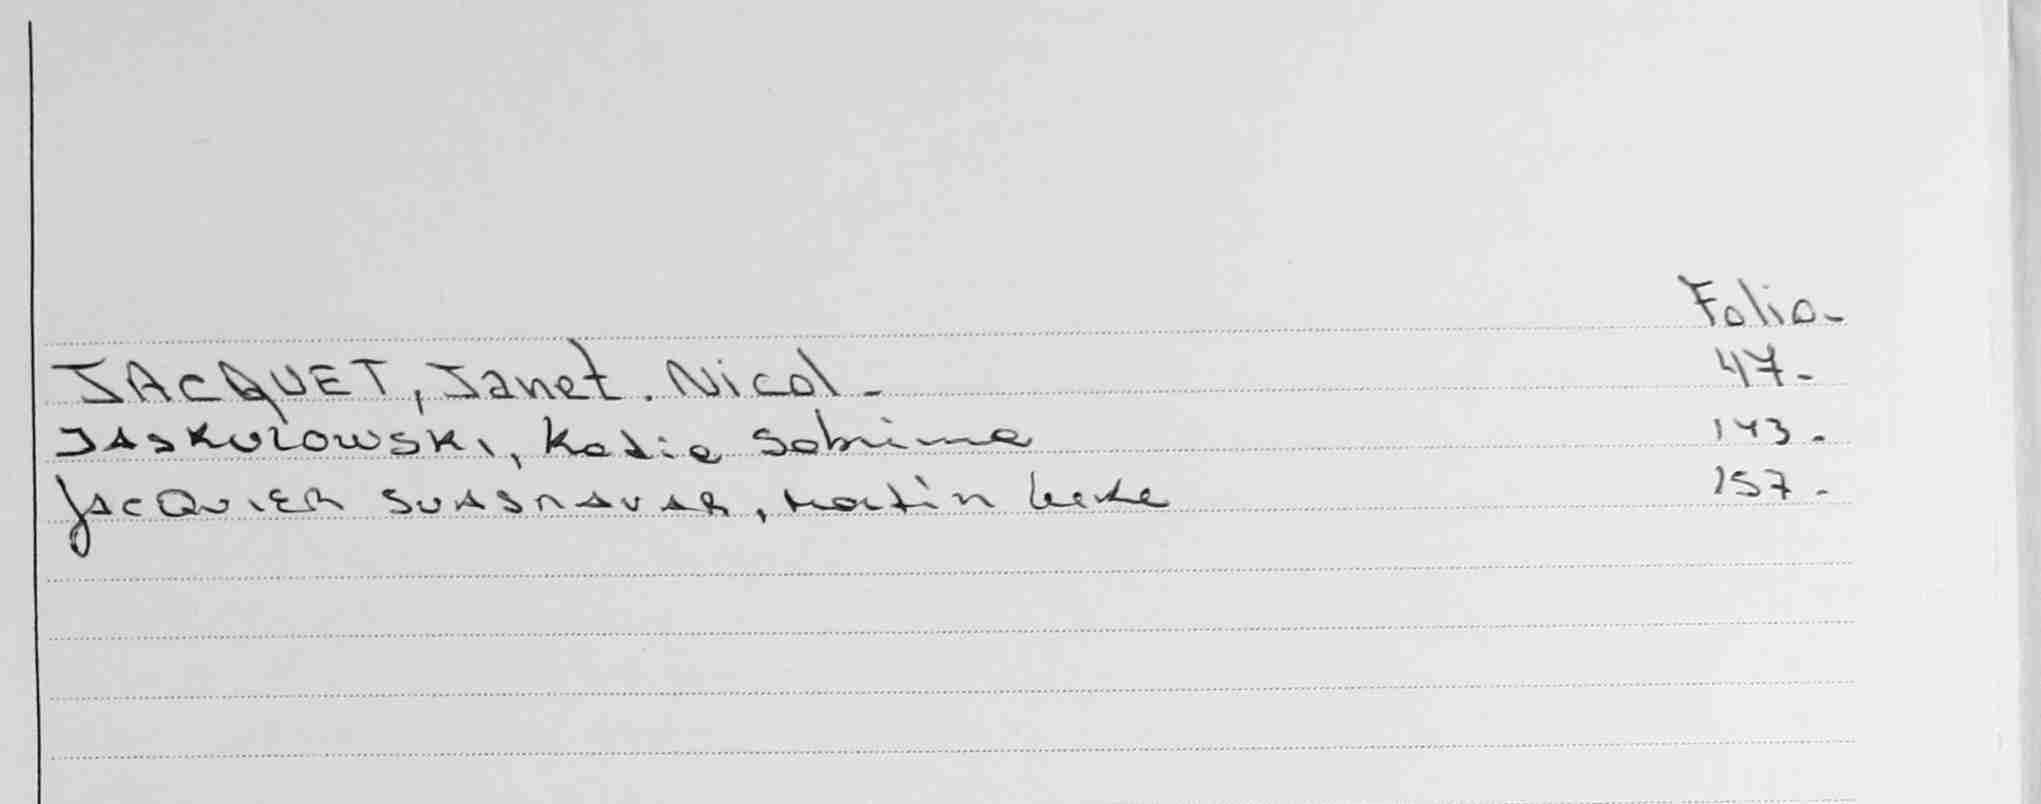 Folio-
JACQUET, Janet. Nicol- 47-
JASKULOWSKI, Katia Sabrina 143.
JACQUIER SUASNAVAR, Martin 157-